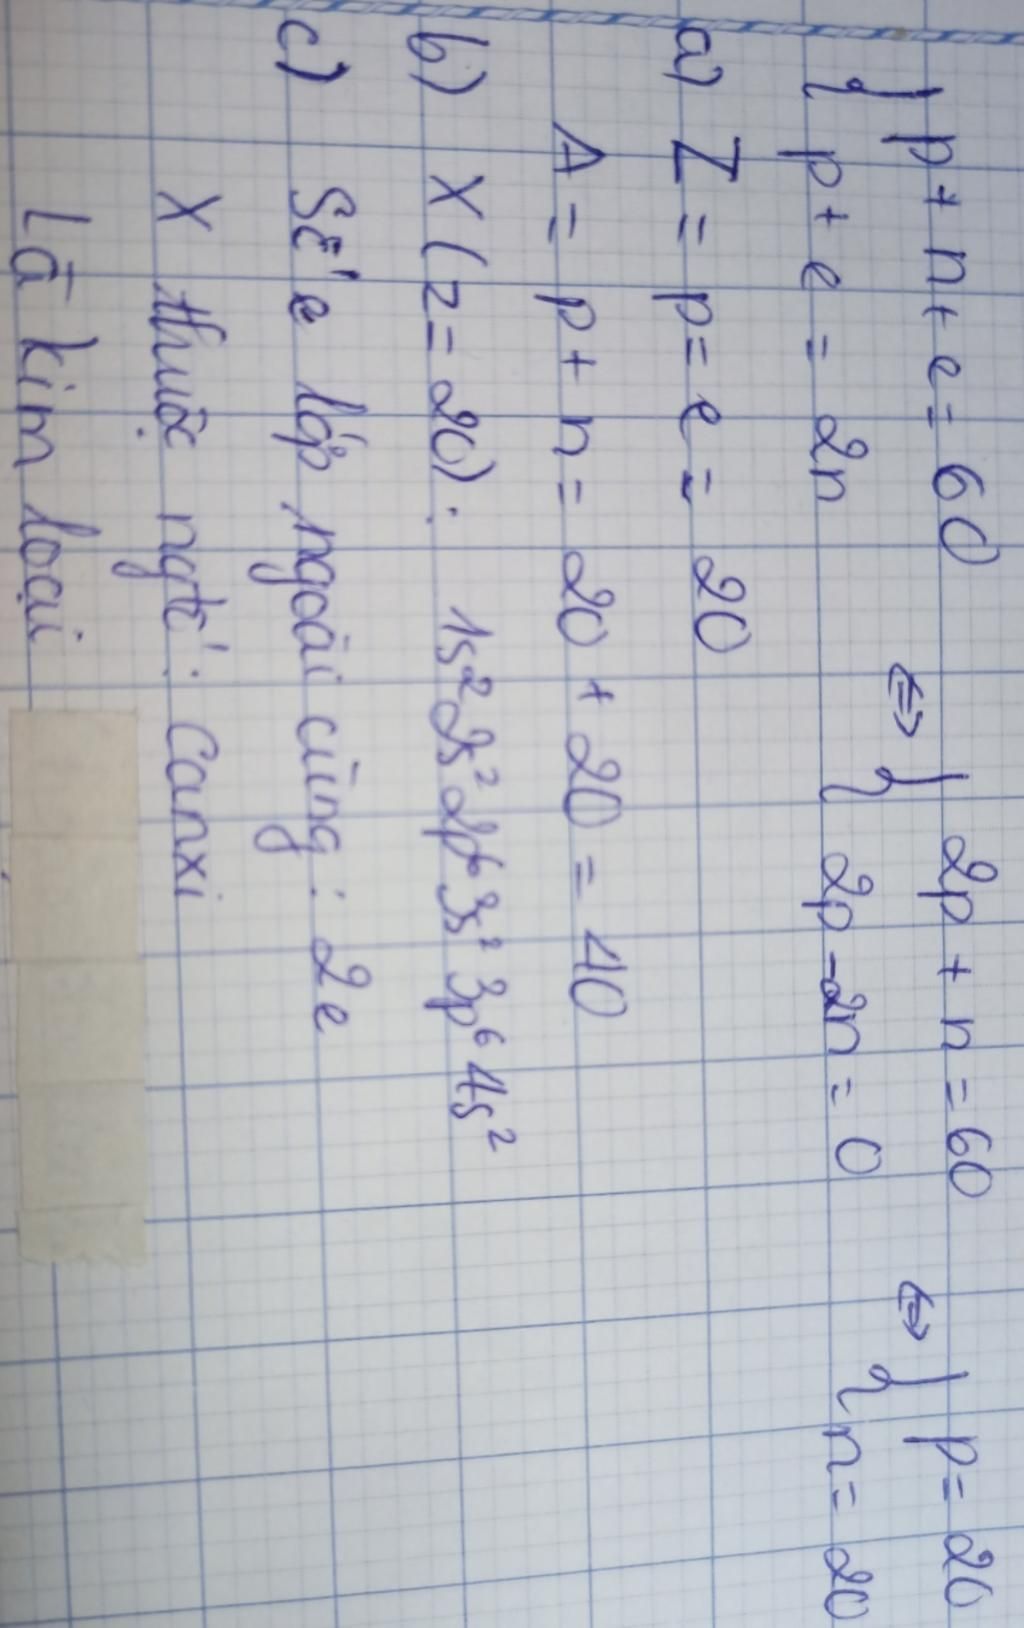 { p + n + e = 60 ⇔ { 2p + n = 60 ⇔ { p = 20
{ p + e = 2n { 2p - 2n = 0 { n = 20
a) Z = p = e = 20
A = p + n = 20 + 20 = 40
b) X (z = 20): 1s² 2s² 2p⁶ 3s² 3p⁶ 4s²
c) Số e lớp ngoài cùng: 2e
X thuộc ngtố: Canxi
Là kim loại